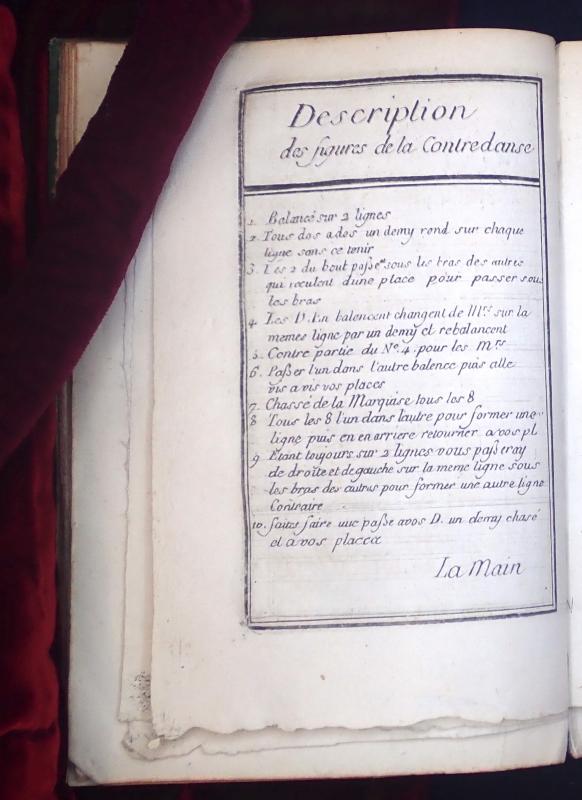 Description
des figures de la Contredanse
1. Balancé sur 2 lignes
2. Tous dos a dos un demy rond sur chaque
ligne sans ce tenir
3. Les 2 du bout paße.nt sous les bras des autres
qui reculent dune place pour passer sous
les bras
4. Les D. En balencent changent de Mrs sur la
memes ligne par un demy et rebalancent
5. Contre partie du No. 4. pour les Mrs
6. Paßer l'un dans l'autre balence puis alle
vis a vis vos places
7. Chassé de la Marquise tous les 8
8 Tous les 8 l'un dans lautre pour former une
ligne puis en en arriere retourner a vos pl
9 Etant toujours sur 2 lignes vous paßeray
de droite et de gauche sur la meme ligne sous
les bras des autres pour former une autre ligne
Contraire
10. faites faire une paße a vos D. un demy chasé
et a vos placea
La Main